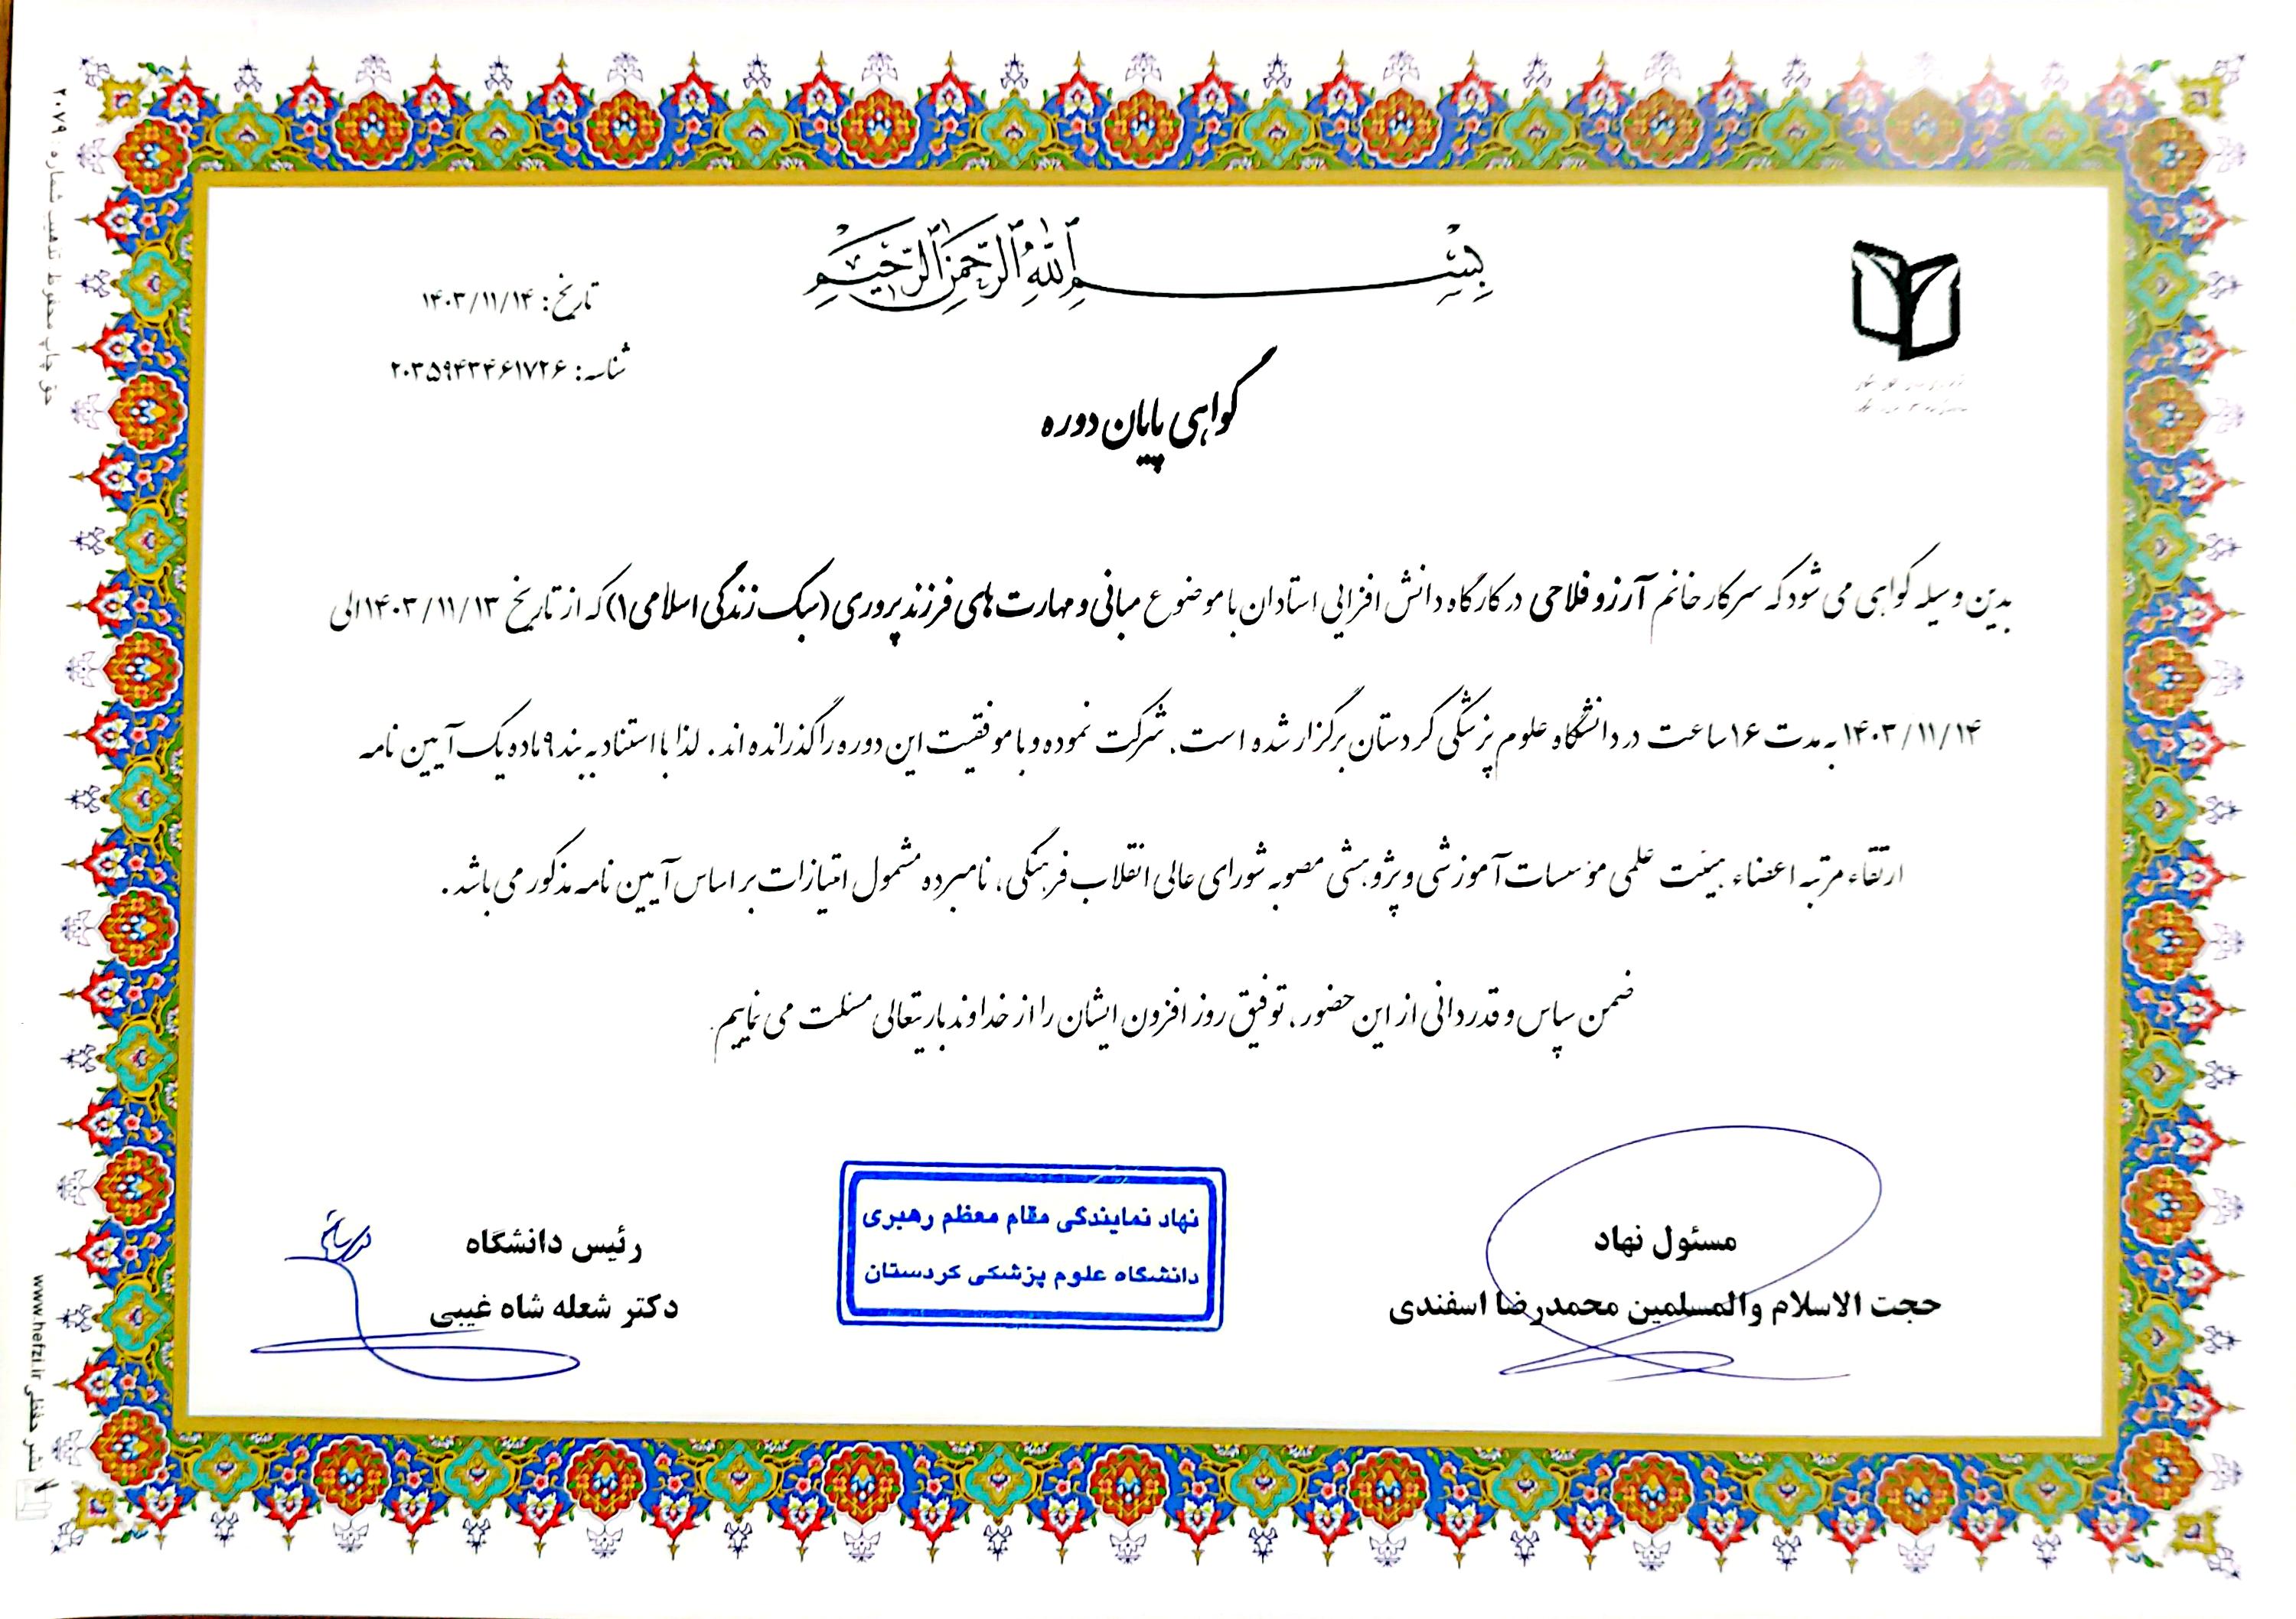 بِسْمِ اللَّهِ الرَّحْمَنِ الرَّحِيمِ
تاریخ: ۱۴۰۳/۱۱/۱۴
شناسه: ۲۰۳۵۹۴۳۴۶۱۷۲۶
گواهی پایان دوره
بدین وسیله گواهی می شود که سرکار خانم آرزو فلاحی در کارگاه دانش افزایی استادان با موضوع مبانی و مهارت های فرزندپروری (سبک زندگی اسلامی۱) که از تاریخ ۱۴۰۳/۱۱/۱۳ الی
۱۴۰۳/۱۱/۱۴ به مدت ۱۶ ساعت در دانشگاه علوم پزشکی کردستان برگزار شده است، شرکت نموده و با موفقیت این دوره را گذرانده اند. لذا با استناد به بند ۹ ماده یک آیین نامه
ارتقاء مرتبه اعضاء هیئت علمی مؤسسات آموزشی و پژوهشی مصوبه شورای عالی انقلاب فرهنگی، نامبرده مشمول امتیازات بر اساس آیین نامه مذکور می باشد.
ضمن سپاس و قدردانی از این حضور، توفیق روز افزون ایشان را از خداوند باریتعالی مسئلت می نماییم.
مسئول نهاد
حجت الاسلام والمسلمین محمدرضا اسفندی
نهاد نمایندگی مقام معظم رهبری
دانشگاه علوم پزشکی کردستان
رئیس دانشگاه
دکتر شعله شاه غیبی
حق چاپ محفوظ تذهیب شماره : ۲۰۷۹
نشر حفظی www.hefzi.ir